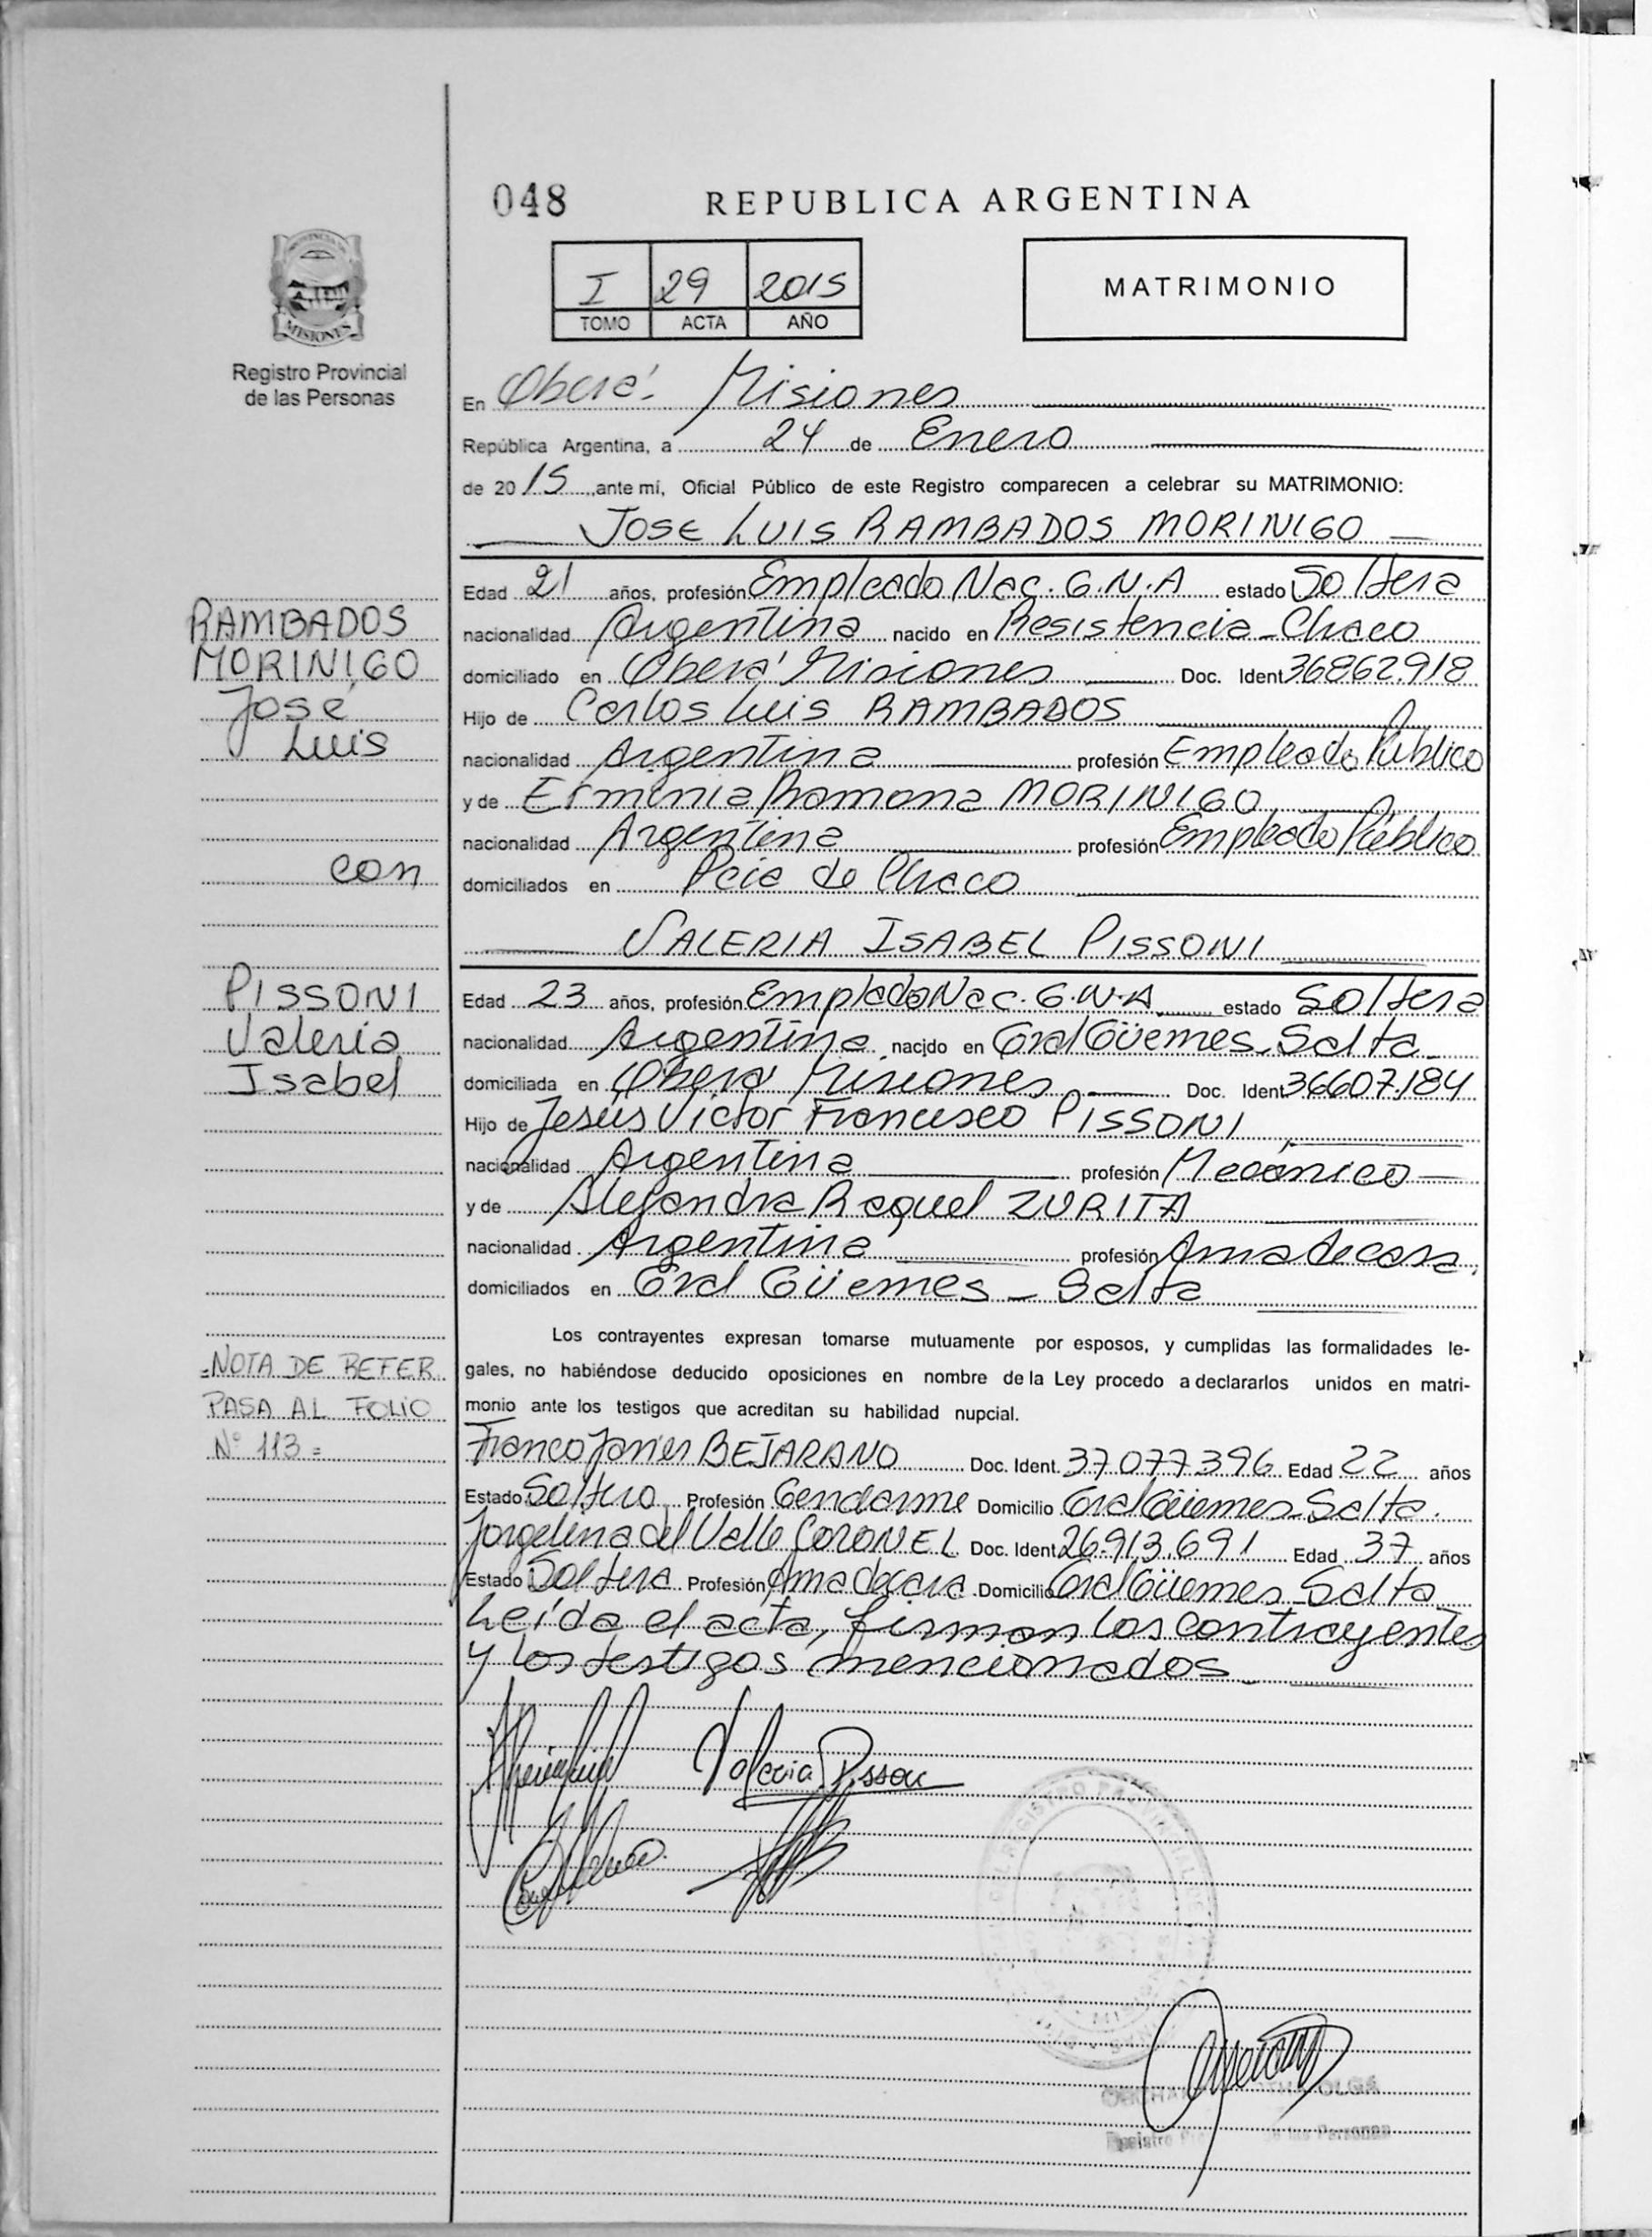 048
REPUBLICA ARGENTINA
I 29 2015
TOMO ACTA AÑO
MATRIMONIO
PROVINCIA DE
MISIONES
Registro Provincial
de las Personas
En Oberá. Misiones
República Argentina, a 24 de Enero
de 2015, ante mí, Oficial Público de este Registro comparecen a celebrar su MATRIMONIO:
JOSE LUIS RAMBADOS MORINIGO
Edad 21 años, profesión Empleado Nac. G.N.A estado Soltera
nacionalidad Argentina nacido en Resistencia - Chaco
domiciliado en Oberá Misiones Doc. Ident 36862.918
Hijo de Carlos Luis RAMBADOS
nacionalidad Argentina profesión Empleado Público
y de Erminia Ramona MORINIGO
nacionalidad Argentina profesión Empleado Público
domiciliados en Pcia de Chaco
VALERIA ISABEL PISSONI
Edad 23 años, profesión Empledo Nac. G.N.A estado Soltera
nacionalidad Argentina nacido en Gral Güemes - Salta
domiciliada en Oberá Misiones Doc. Ident 36607.184
Hijo de Jesús Victor Francisco PISSONI
nacionalidad Argentina profesión Mecánico
y de Alejandra Raquel ZURITA
nacionalidad Argentina profesión Ama de casa.
domiciliados en Gral Güemes - Salta
Los contrayentes expresan tomarse mutuamente por esposos, y cumplidas las formalidades le-
gales, no habiéndose deducido oposiciones en nombre de la Ley procedo a declararlos unidos en matri-
monio ante los testigos que acreditan su habilidad nupcial.
Franco Javier BEJARANO Doc. Ident. 37077396 Edad 22 años
Estado Soltero Profesión Gendarme Domicilio Gral Güemes - Salta.
Jorgelina del Valle CORONEL Doc. Ident 26.913.691 Edad 37 años
Estado Soltera Profesión Ama de casa Domicilio Gral Güemes - Salta
Leída el acta, firman los contrayentes
y los testigos mencionados
Valeria Pissoni
RAMBADOS
MORINIGO
José
Luis
con
PISSONI
Valeria
Isabel
=NOTA DE REFER
PASA AL FOLIO
N° 113=
REGISTRO PROVINCIAL DE
OLGA
Registro de las Personas